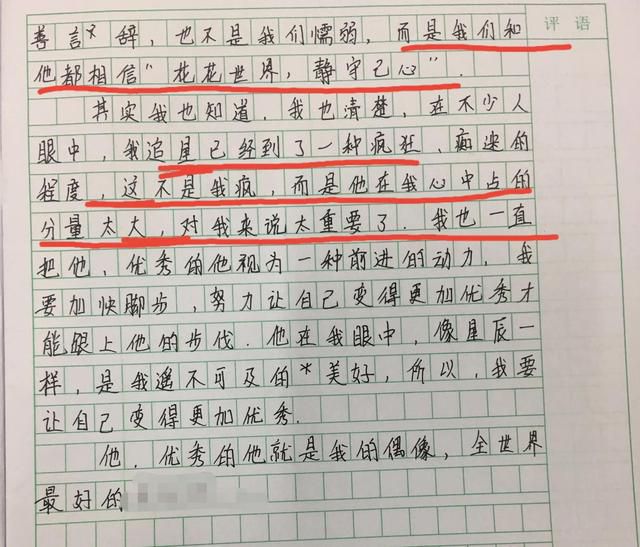 评语
善言*辞，也不是我们懦弱，而是我们和
他都相信“花花世界，静守己心”.
其实我也知道，我也清楚，在不少人
眼中，我追星已经到了一种疯狂、痴迷的
程度，这不是我疯，而是他在我心中占的
分量太大，对我来说太重要了.我也一直
把他，优秀的他视为一种前进的动力，我
要加快脚步，努力让自己变得更加优秀才
能跟上他的步伐.他在我眼中，像星辰一
样，是我遥不可及的*美好，所以，我要
让自己变得更加优秀.
他.优秀的他就是我的偶像，全世界
最好的